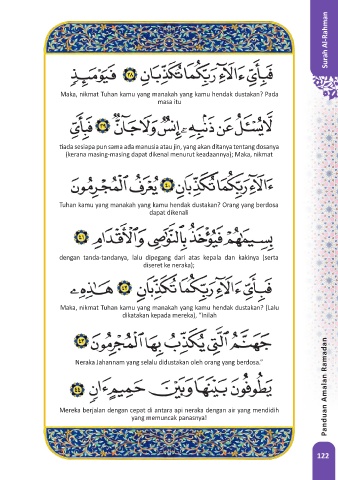 Surah Al-Rahman
فَبِأَيِّ ءَالَآءِ رَبِّكُمَا تُكَذِّبَانِ ٣٨ فَيَوْمَئِذٍ
Maka, nikmat Tuhan kamu yang manakah yang kamu hendak dustakan? Pada
masa itu
لَّا يُسْـَٔلُ عَن ذَنۢبِهِۦٓ إِنسٌ وَلَا جَآنٌّ ٣٩ فَبِأَيِّ
tiada sesiapa pun sama ada manusia atau jin, yang akan ditanya tentang dosanya
(kerana masing-masing dapat dikenal menurut keadaannya); Maka, nikmat
ءَالَآءِ رَبِّكُمَا تُكَذِّبَانِ ٤٠ يُعْرَفُ الْمُجْرِمُونَ
Tuhan kamu yang manakah yang kamu hendak dustakan? Orang yang berdosa
dapat dikenali
بِسِيمَٰهُمْ فَيُؤْخَذُ بِالنَّوَٰصِي وَالْأَقْدَامِ ٤١
dengan tanda-tandanya, lalu dipegang dari atas kepala dan kakinya (serta
diseret ke neraka);
فَبِأَيِّ ءَالَآءِ رَبِّكُمَا تُكَذِّبَانِ ٤٢ هَٰذِهِۦ
Maka, nikmat Tuhan kamu yang manakah yang kamu hendak dustakan? (Lalu
dikatakan kepada mereka), "Inilah
جَهَنَّمُ الَّتِي يُكَذِّبُ بِهَا الْمُجْرِمُونَ ٤٣
Neraka Jahannam yang selalu didustakan oleh orang yang berdosa."
يَطُوفُونَ بَيْنَهَا وَبَيْنَ حَمِيمٍ ءَانٍ ٤٤
Mereka berjalan dengan cepat di antara api neraka dengan air yang mendidih
yang memuncak panasnya!
Panduan Amalan Ramadan
122